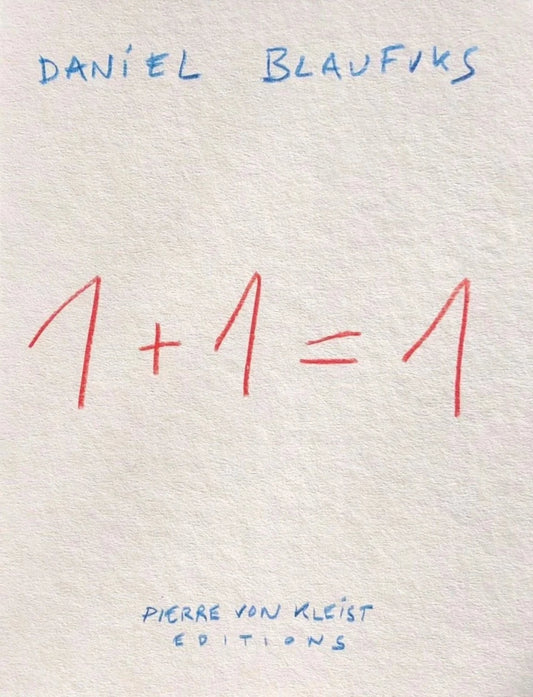 DANiEL BLAUFUKS
1+1=1
PiERRE VON KLEiST
EDITIONS